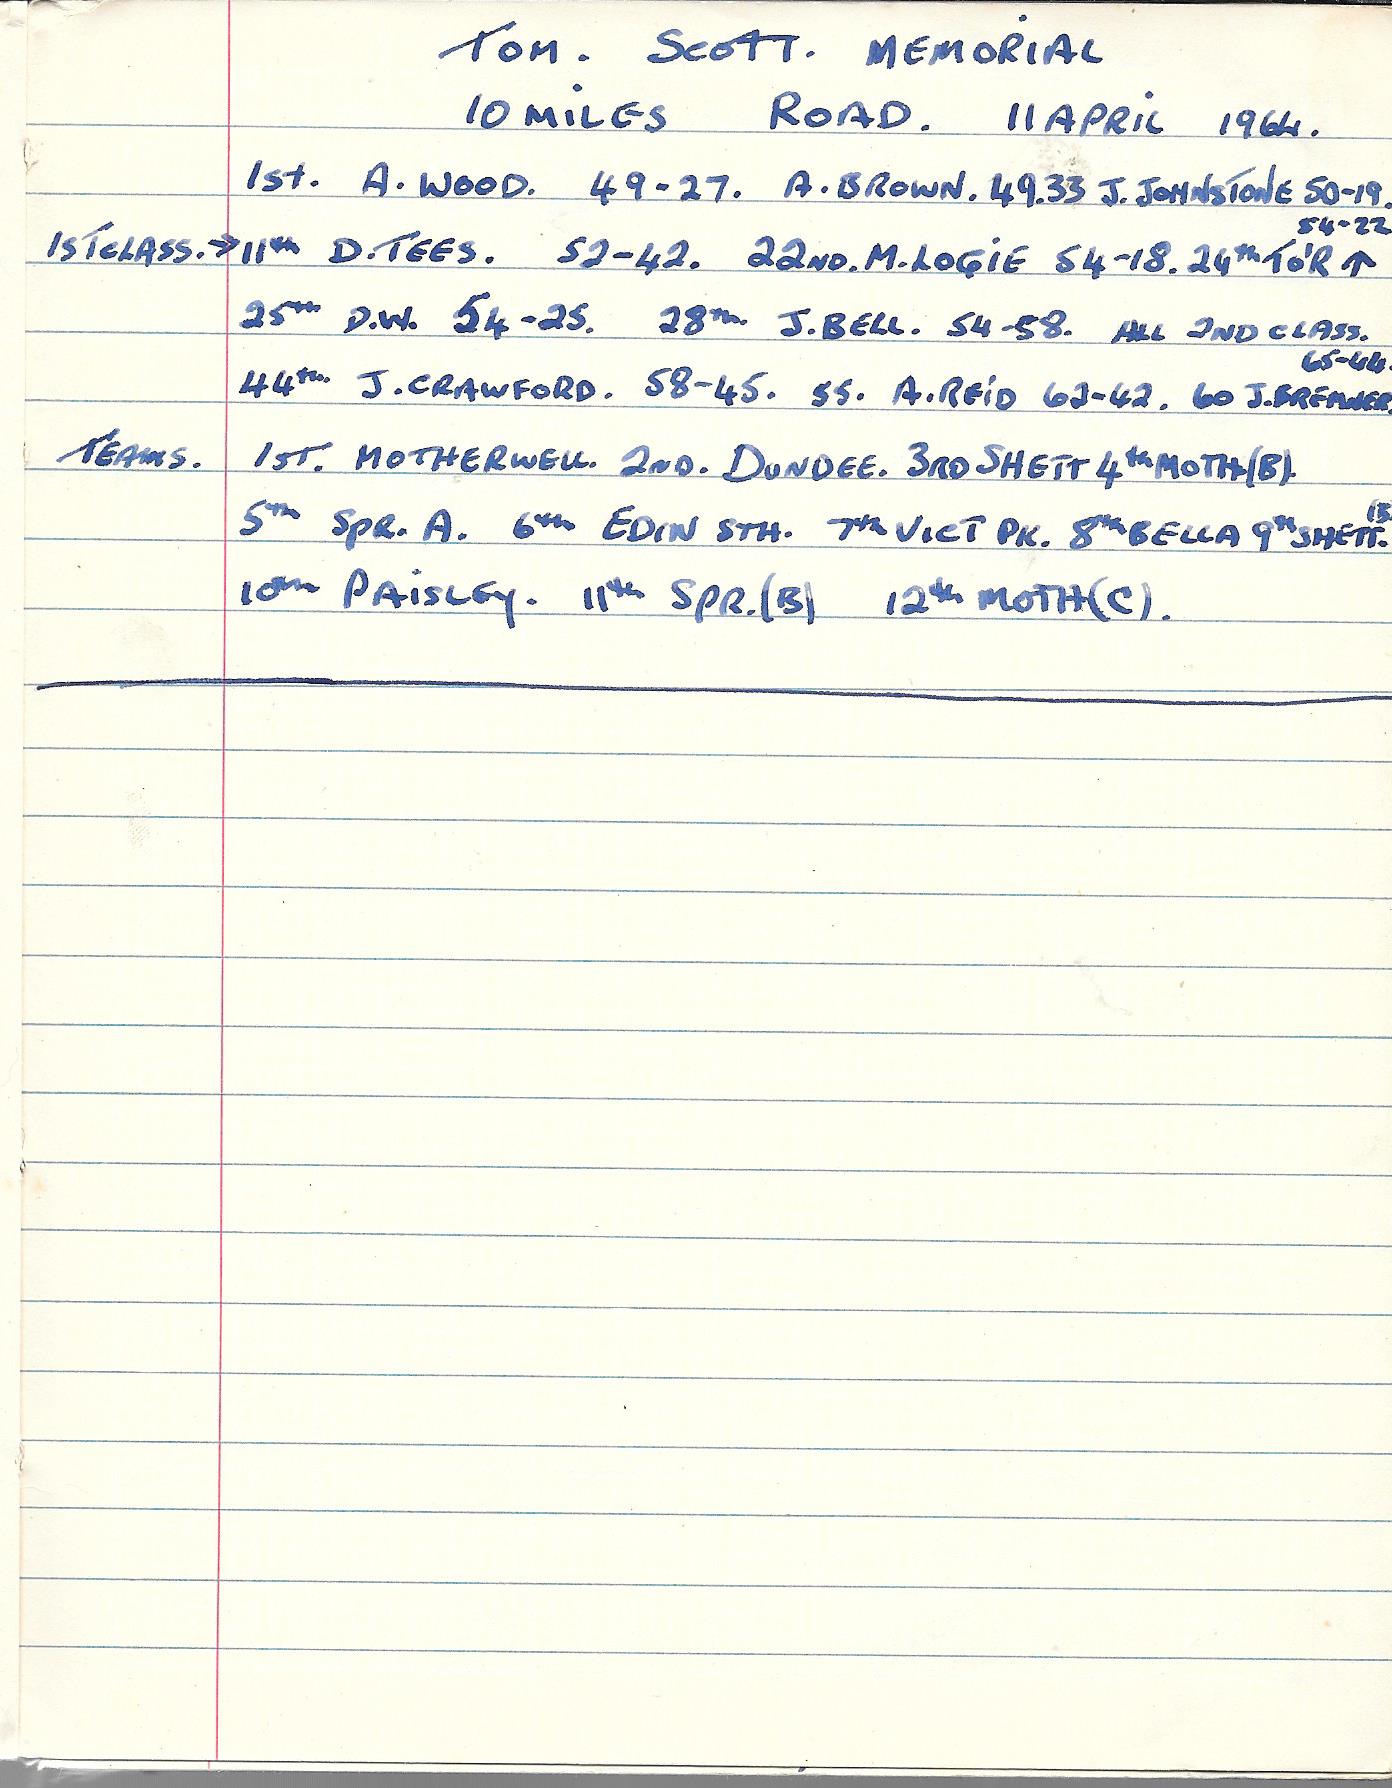 TOM. SCOTT. MEMORIAL
10 MILES ROAD. 11 APRIL 1964.
1st. A. WOOD. 49-27. A. BROWN. 49.33 J. JOHNSTONE 50-19.
54-22
1ST CLASS. → 11th D. TEES. 52-42. 22ND. M. LOGIE 54-18. 24th TO'R ↑
25th D.W. 54-25. 28th J. BELL. 54-58. ALL 2ND CLASS.
65-44.
44th. J. CRAWFORD. 58-45. 55. A. REID 62-42. 60 J. BREMNER.
TEAMS. 1ST. MOTHERWELL. 2ND. DUNDEE. 3RD SHETT 4th MOTH(B)
5th SPR. A. 6th EDIN STH. 7th VICT PK. 8th BELLA 9th SHETT. (B
10th PAISLEY. 11th SPR.(B) 12th MOTH(C).